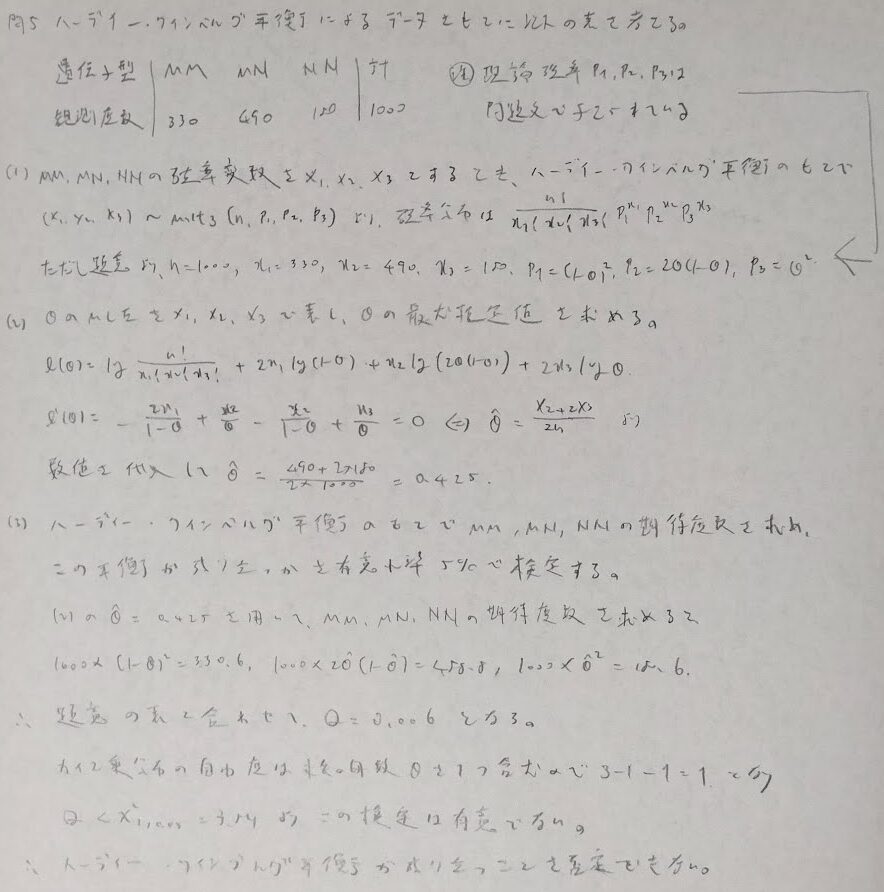 問5 ハーディー・ワインベルグ平衡によるデータをもとに以下の表を考える。
遺伝子型 MM MN NN 計 ㊟理論確率 P1, P2, P3は
観測度数 330 490 180 1000 問題文で与えられている
(1) MM, MN, NNの確率変数を X1, X2, X3 とするとき、ハーディー・ワインベルグ平衡のもとで
(X1, X2, X3) ~ mult3 (n, P1, P2, P3) より、確率分布は n!/(x1! x2! x3!) P1^x1 P2^x2 P3^x3
ただし題意より、n=1000, x1=330, x2=490, x3=180, P1=(1-θ)^2, P2=2θ(1-θ), P3=θ^2
(2) θのMLEを X1, X2, X3 で表し、θの最尤推定値を求める。
l(θ) = log n!/(x1! x2! x3!) + 2x1 log(1-θ) + x2 log(2θ(1-θ)) + 2x3 log θ.
l'(θ) = - 2x1/(1-θ) + x2/θ - x2/(1-θ) + x3/θ = 0 ⇔ θ̂ = (X2+2X3)/2n より
数値を代入して θ̂ = (490+2×180)/(2×1000) = 0.425.
(3) ハーディー・ワインベルグ平衡のもとで MM, MN, NNの期待度数を求め、
この平衡が成り立つかを有意水準 5%で検定する。
(2)の θ̂ = 0.425 を用いて、MM, MN, NNの期待度数を求めると
1000×(1-θ̂)^2 = 330.6, 1000×2θ̂(1-θ̂) = 488.8, 1000×θ̂^2 = 180.6.
∴ 題意の表と合わせて、Q = 0.006 となる。
カイ2乗分布の自由度は未知母数 θ を1つ含むので 3-1-1=1 となり
Q < χ^2 1,0.05 = 3.84 より この検定は有意でない。
∴ ハーディー・ワインブルグ平衡が成り立つことを否定できない。